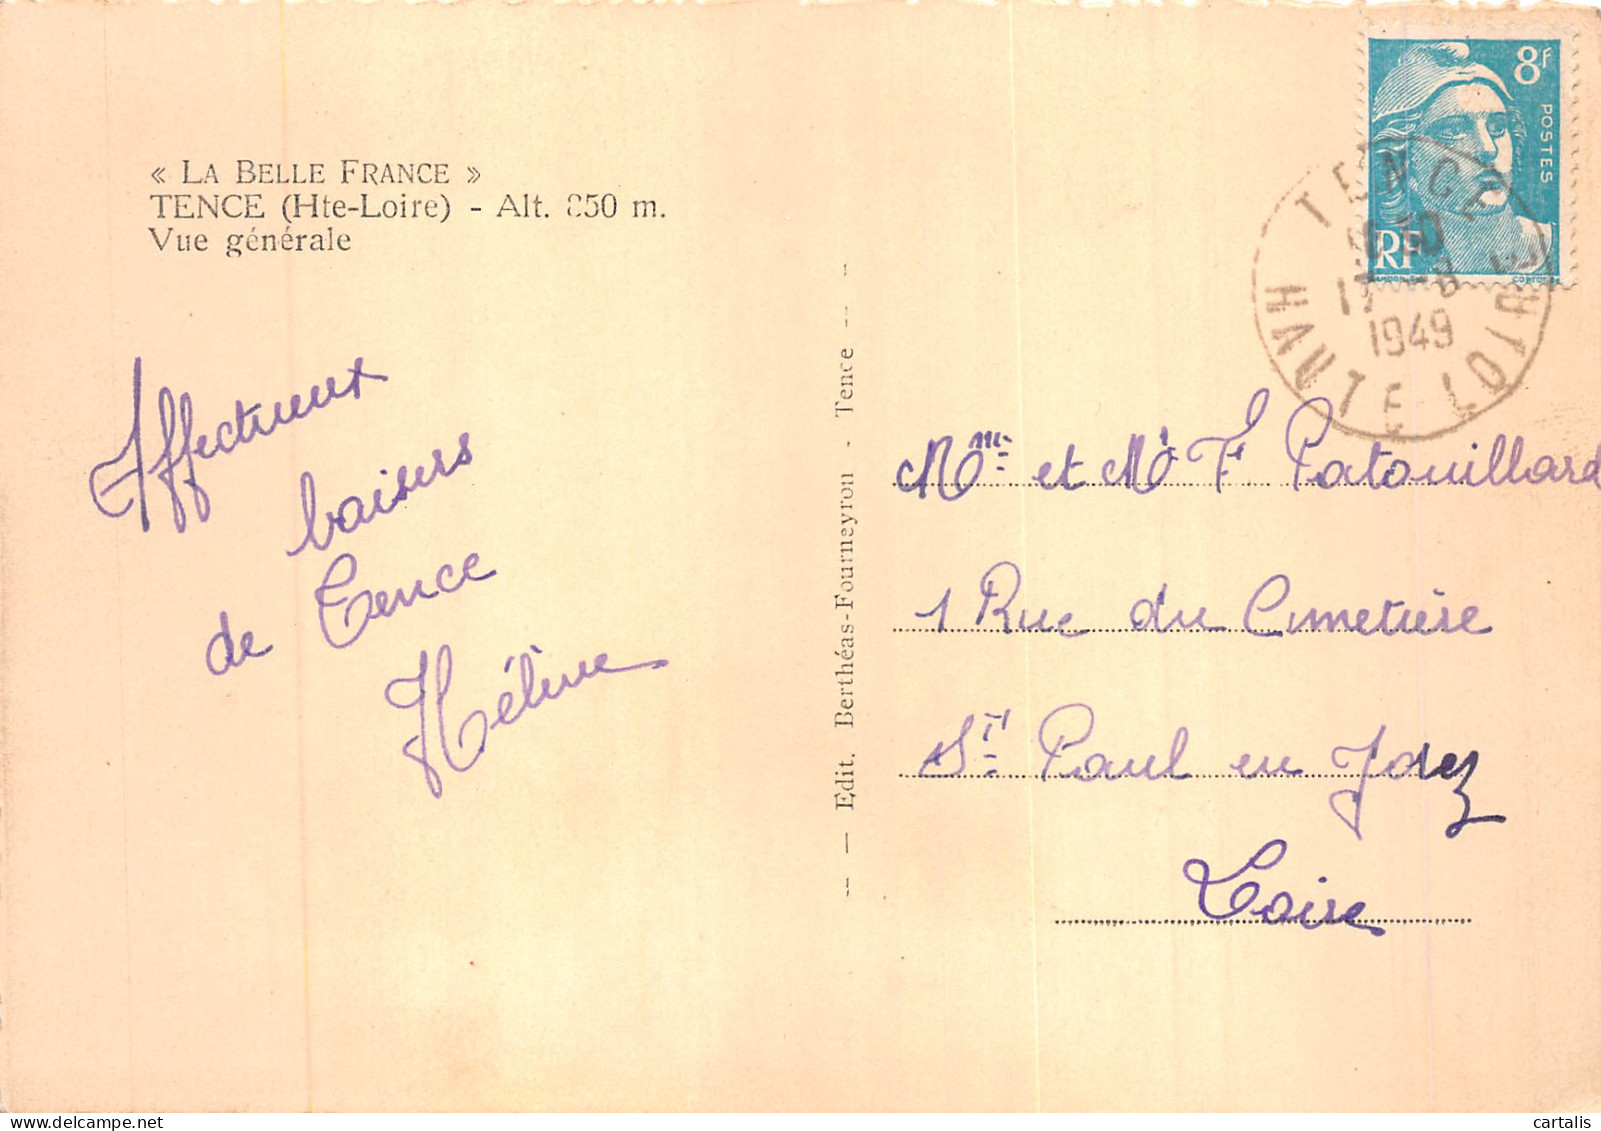 « LA BELLE FRANCE »
TENCE (Hte-Loire) - Alt. 850 m.
Vue générale
Affectueux
baisers
de Tence
Héline
-- — Edit. Berthéas-Fourneyron - Tence -- -
8F
POSTES
RF
TENCE
17 -8
1949
HAUTE LOIRE
Mme et Mr F. Patouillard
1 Rue du Cimetière
St Paul en Jarez
Loire
cartalis
www.delcampe.net